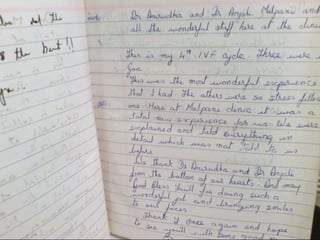 the best!!
Dr Anirudha and Dr Anjali Malpani and
all the wonderful staff here at the clinic
This is my 4th IVF cycle. Three were
"This was the most wonderful experience
that I had. The others were so stress filled
one. Here at Malpani clinic it was a
total new experience for us. We were
explained and told everything in
detail which was not told to us
before.
We thank Dr Anirudha and Dr Anjali
from the bottom of our hearts. And may
God bless you'll for doing such a
wonderful job and bringing smiles
to our faces.
Thank U once again and hope
to see you'll with some good